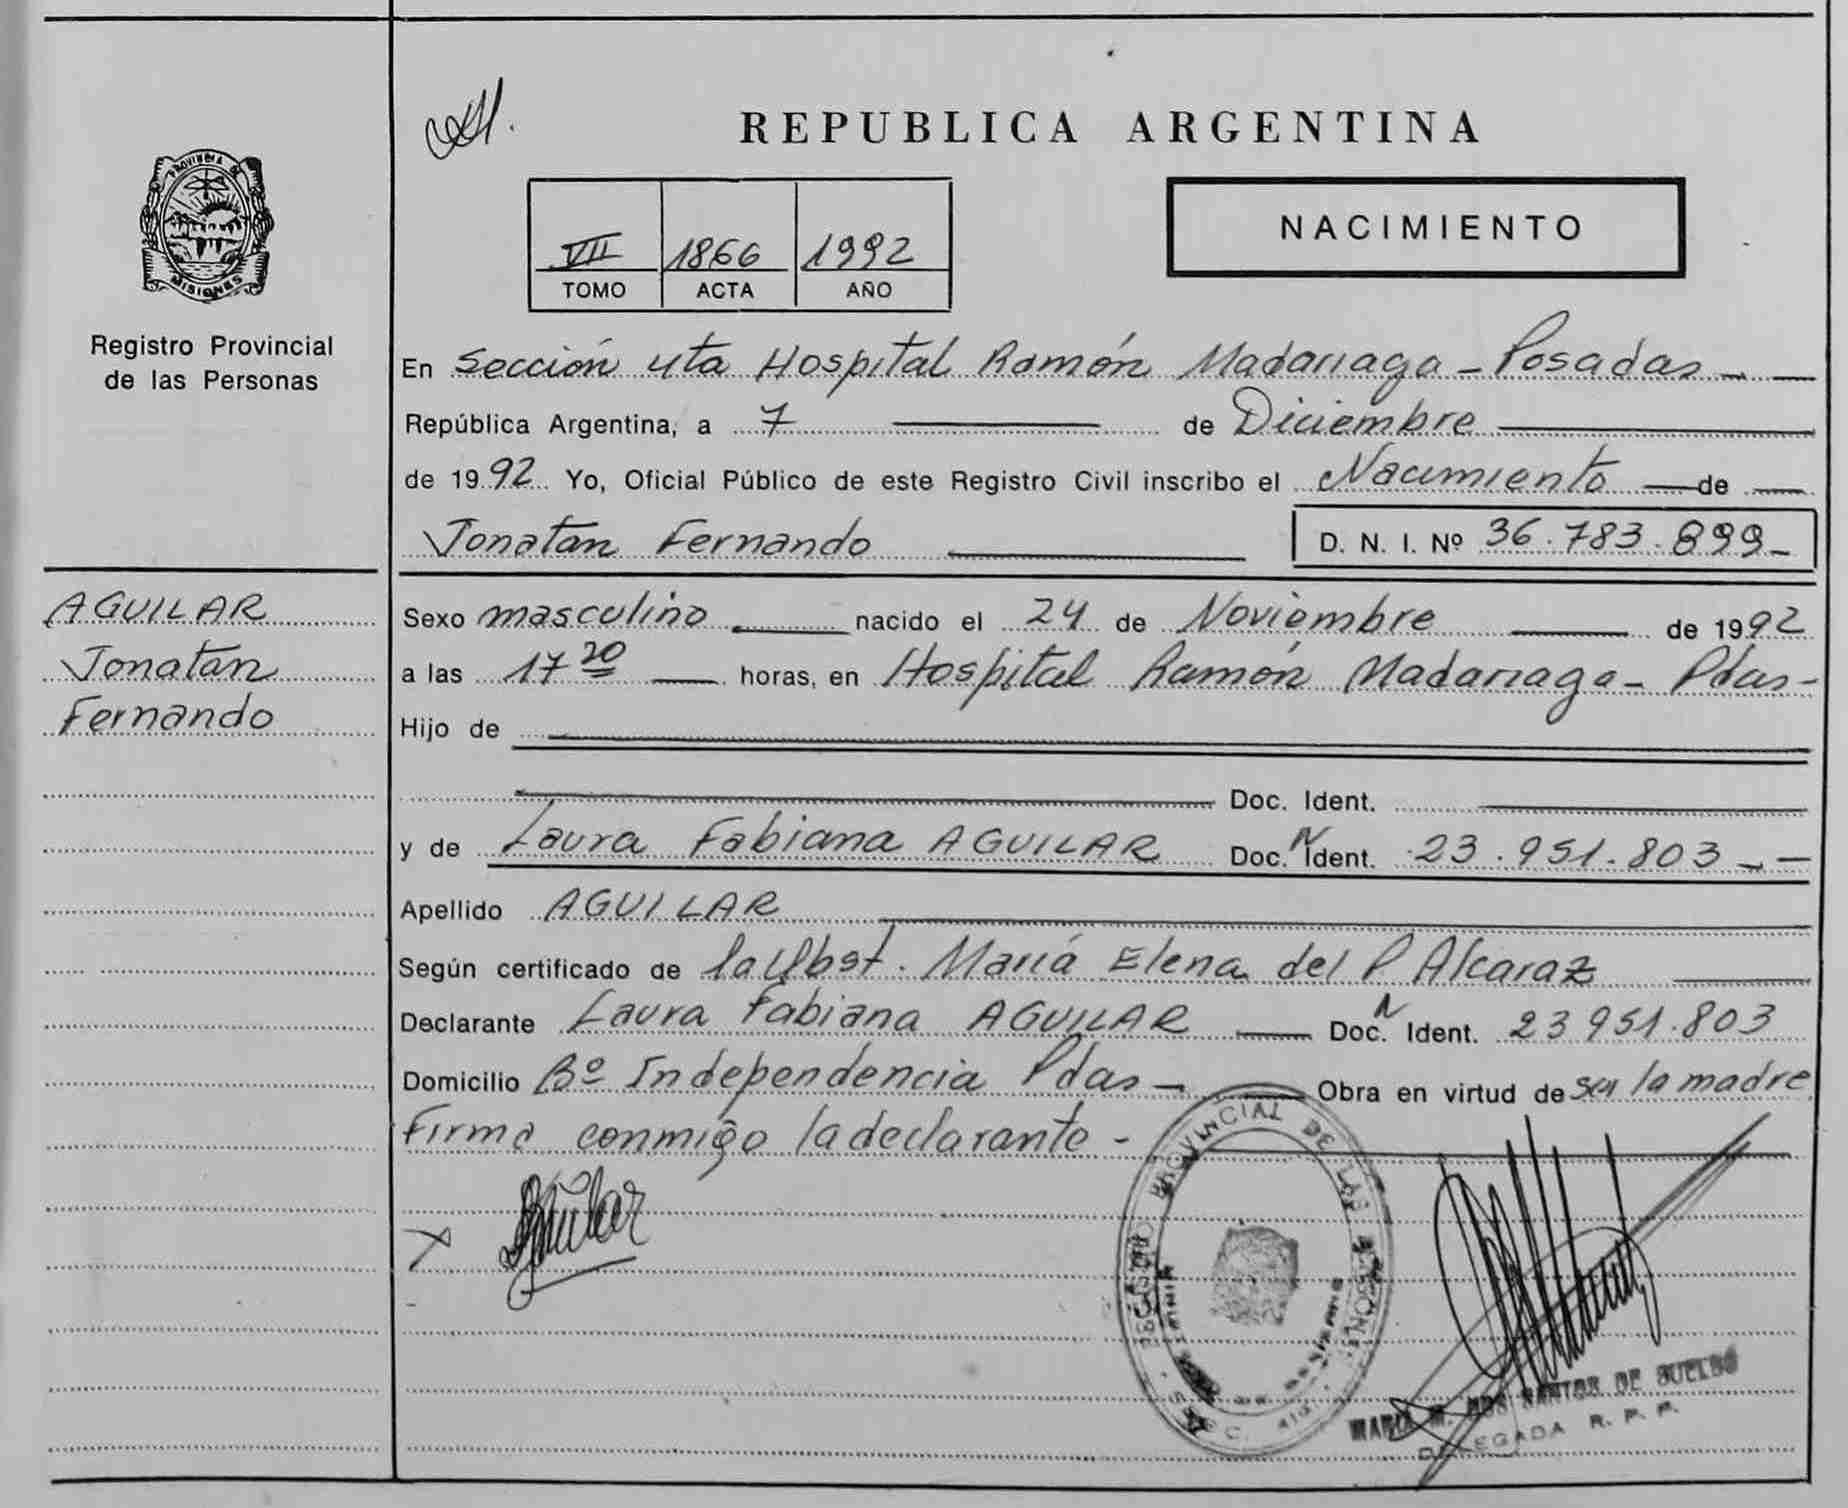 REPUBLICA ARGENTINA
PROVINCIA DE
MISIONES
Registro Provincial
de las Personas
VII 1866 1992
TOMO ACTA AÑO
NACIMIENTO
En Sección 4ta Hospital Ramón Madariaga - Posadas -
República Argentina, a 7 de Diciembre
de 1992 Yo, Oficial Público de este Registro Civil inscribo el Nacimiento de
Jonatan Fernando D. N. I. Nº 36.783.899-
AGUILAR
Jonatan
Fernando
Sexo masculino nacido el 24 de Noviembre de 1992
a las 17 20 horas, en Hospital Ramón Madariaga - Pdas -
Hijo de
Doc. Ident.
y de Laura Fabiana AGUILAR Doc. N Ident. 23.951.803 - -
Apellido AGUILAR
Según certificado de la Obst. María Elena del P Alcaraz
Declarante Laura Fabiana AGUILAR Doc. N Ident. 23951.803
Domicilio Bº Independencia Pdas - Obra en virtud de ser la madre
Firma conmigo la declarante -
X Aguilar
REGISTRO PROVINCIAL DE LAS PERSONAS
MARIA M. DOS SANTOS DE
DELEGADA R. P. P.